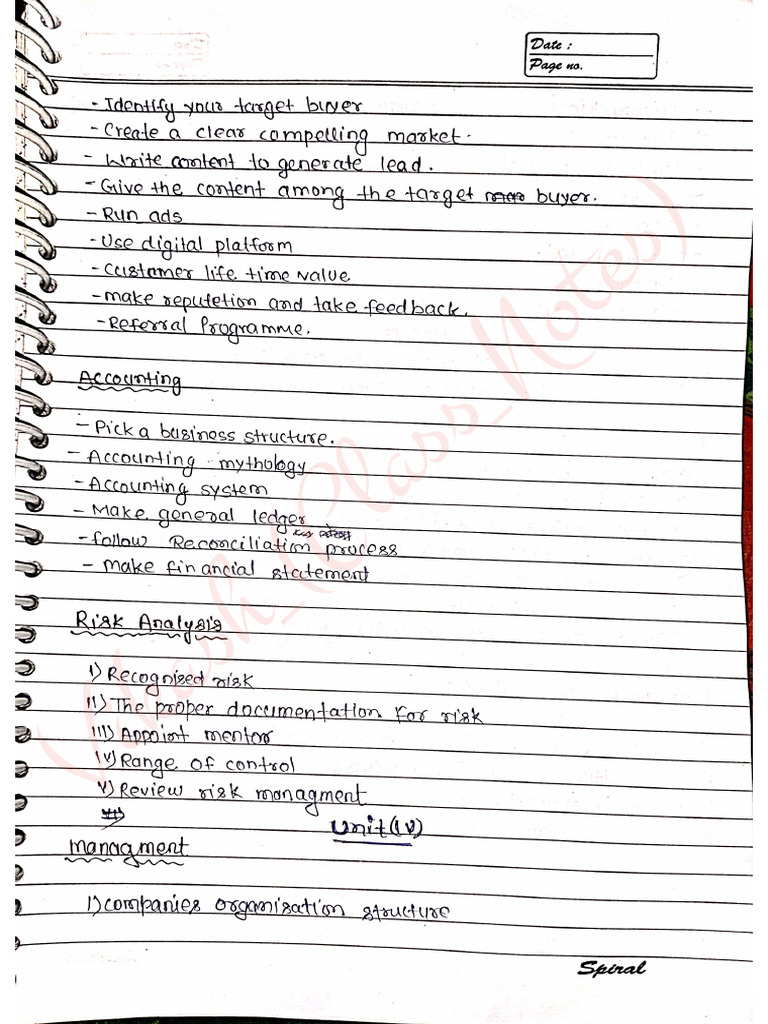 Date :
Page no.
- Identify your target buyer
- Create a clear compelling market.
- Write content to generate lead.
- Give the content among the target buyer.
- Run ads
- Use digital platform
- Customer life time value
- make reputetion and take feedback.
- Referral Programme.
Accounting
- Pick a business structure.
- Accounting mythology
- Accounting system
- Make general ledger
- follow Reconciliation process
- Make financial statement
Risk Analysis
I) Recognised risk
II) The proper documentation for risk
III) Appoint mentor
IV) Range of control
V) Review risk managment
Unit (IV)
Managment
I) companies organisation structure
Spiral